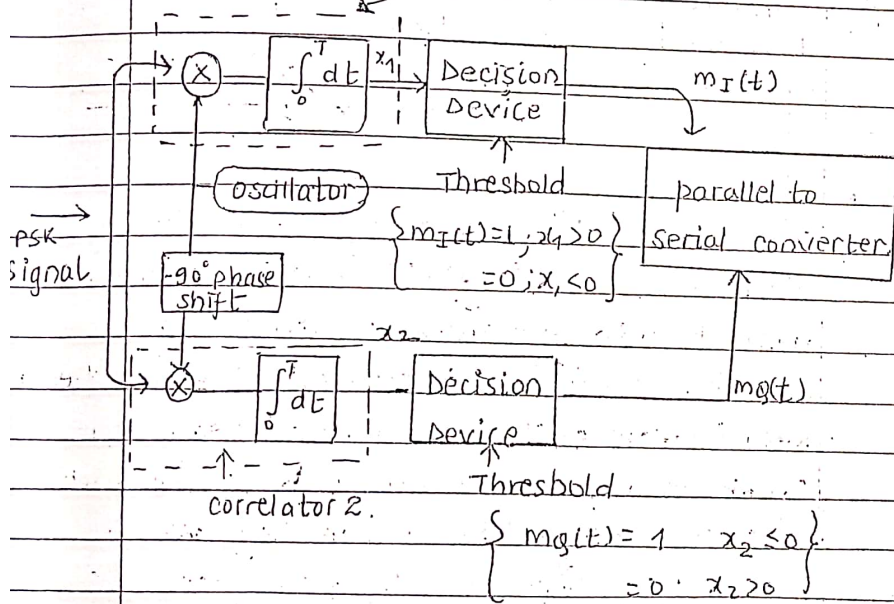 X
∫₀ᵀ dt
x₁
Decision
Device
m_I(t)
oscillator
Threshold
parallel to
serial converter
PSK
signal
{m_I(t)=1; x₁>0}
=0; x₁<0
-90° phase
shift
x₂
X
∫₀ᵀ dt
Decision
Device
m_Q(t)
Threshold
correlator 2.
{m_Q(t) = 1 x₂ ≤0}
=0 x₂>0